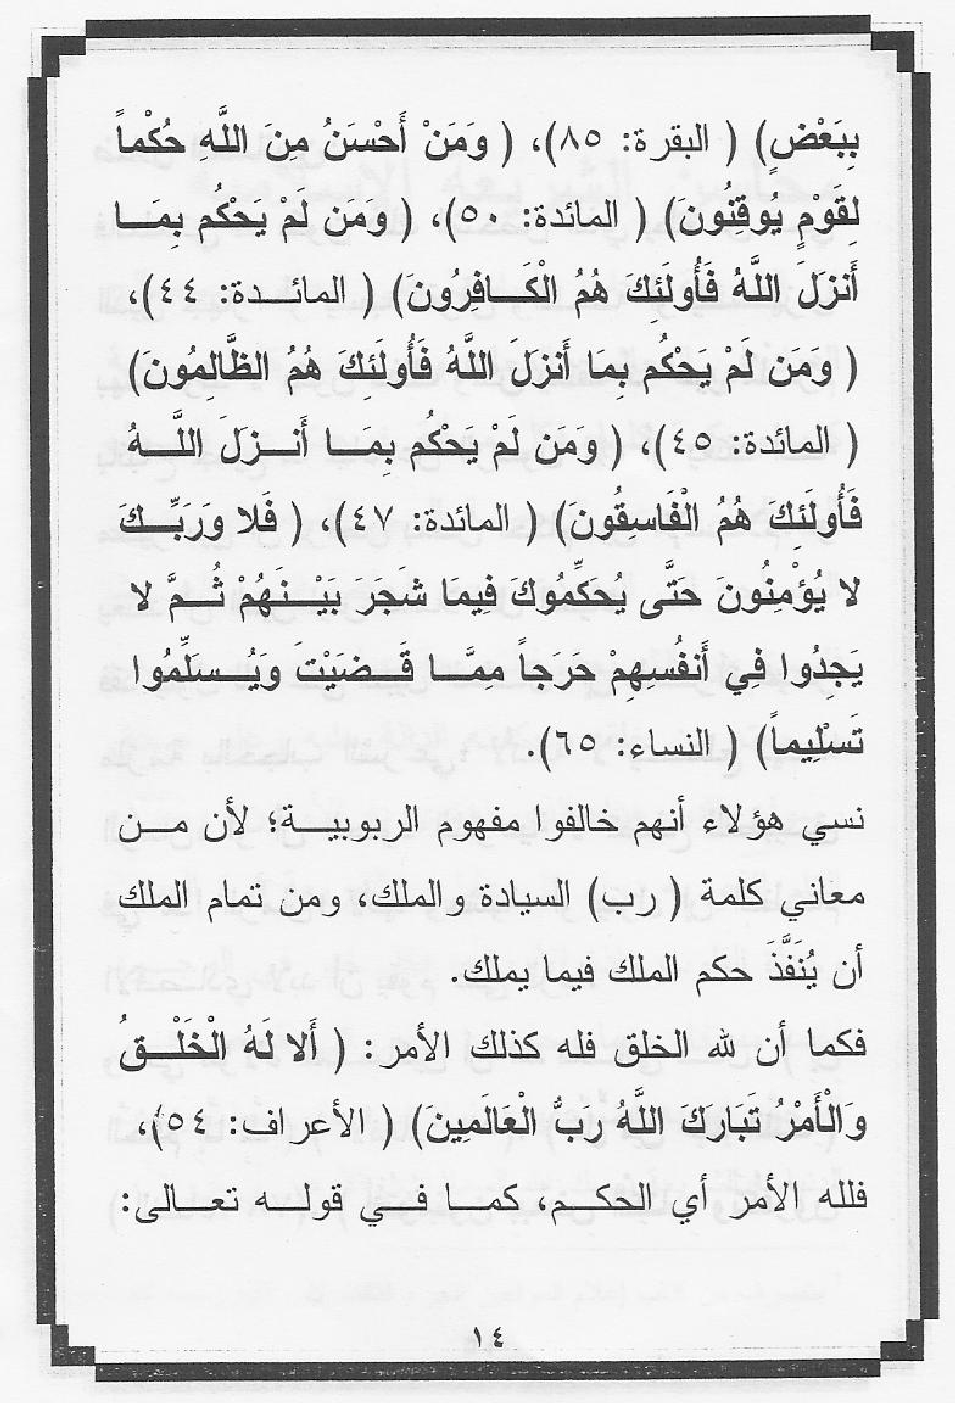 بِبَعْضٍ) ( البقرة: ٨٥)، ( وَمَنْ أَحْسَنُ مِنَ اللَّهِ حُكْماً
لِقَوْمٍ يُوقِنُونَ) ( المائدة: ٥٠)، ( وَمَن لَمْ يَحْكُم بِمَــا
أَنزَلَ اللَّهُ فَأُولَئِكَ هُمُ الْكَــافِرُونَ) ( المائــدة: ٤٤)،
( وَمَن لَمْ يَحْكُم بِمَا أَنزَلَ اللَّهُ فَأُولَئِكَ هُمُ الظَّالِمُونَ)
( المائدة: ٤٥)، ( وَمَن لَمْ يَحْكُم بِمَــا أَنــزلَ اللَّــهُ
فَأُولَئِكَ هُمُ الْفَاسِقُونَ) ( المائدة: ٤٧)، ( فَلا وَرَبِّــكَ
لا يُؤْمِنُونَ حَتَّى يُحَكِّمُوكَ فِيمَا شَجَرَ بَيْــنَهُمْ ثُــمَّ لا
يَجِدُوا فِي أَنفُسِهِمْ حَرَجاً مِمَّــا قَــضَيْتَ وَيُــسَلِّمُوا
تَسْلِيماً) ( النساء: ٦٥).
نسي هؤلاء أنهم خالفوا مفهوم الربوبيــة؛ لأن مــن
معاني كلمة ( رب) السيادة والملك، ومن تمام الملك
أن يُنَفَّذَ حكم الملك فيما يملك.
فكما أن لله الخلق فله كذلك الأمر: ( أَلا لَهُ الْخَلْــقُ
وَالْأَمْرُ تَبَارَكَ اللَّهُ رَبُّ الْعَالَمِينَ) ( الأعراف: ٥٤)،
فلله الأمر أي الحكــم، كمــا فــي قولــه تعــالى:
١٤